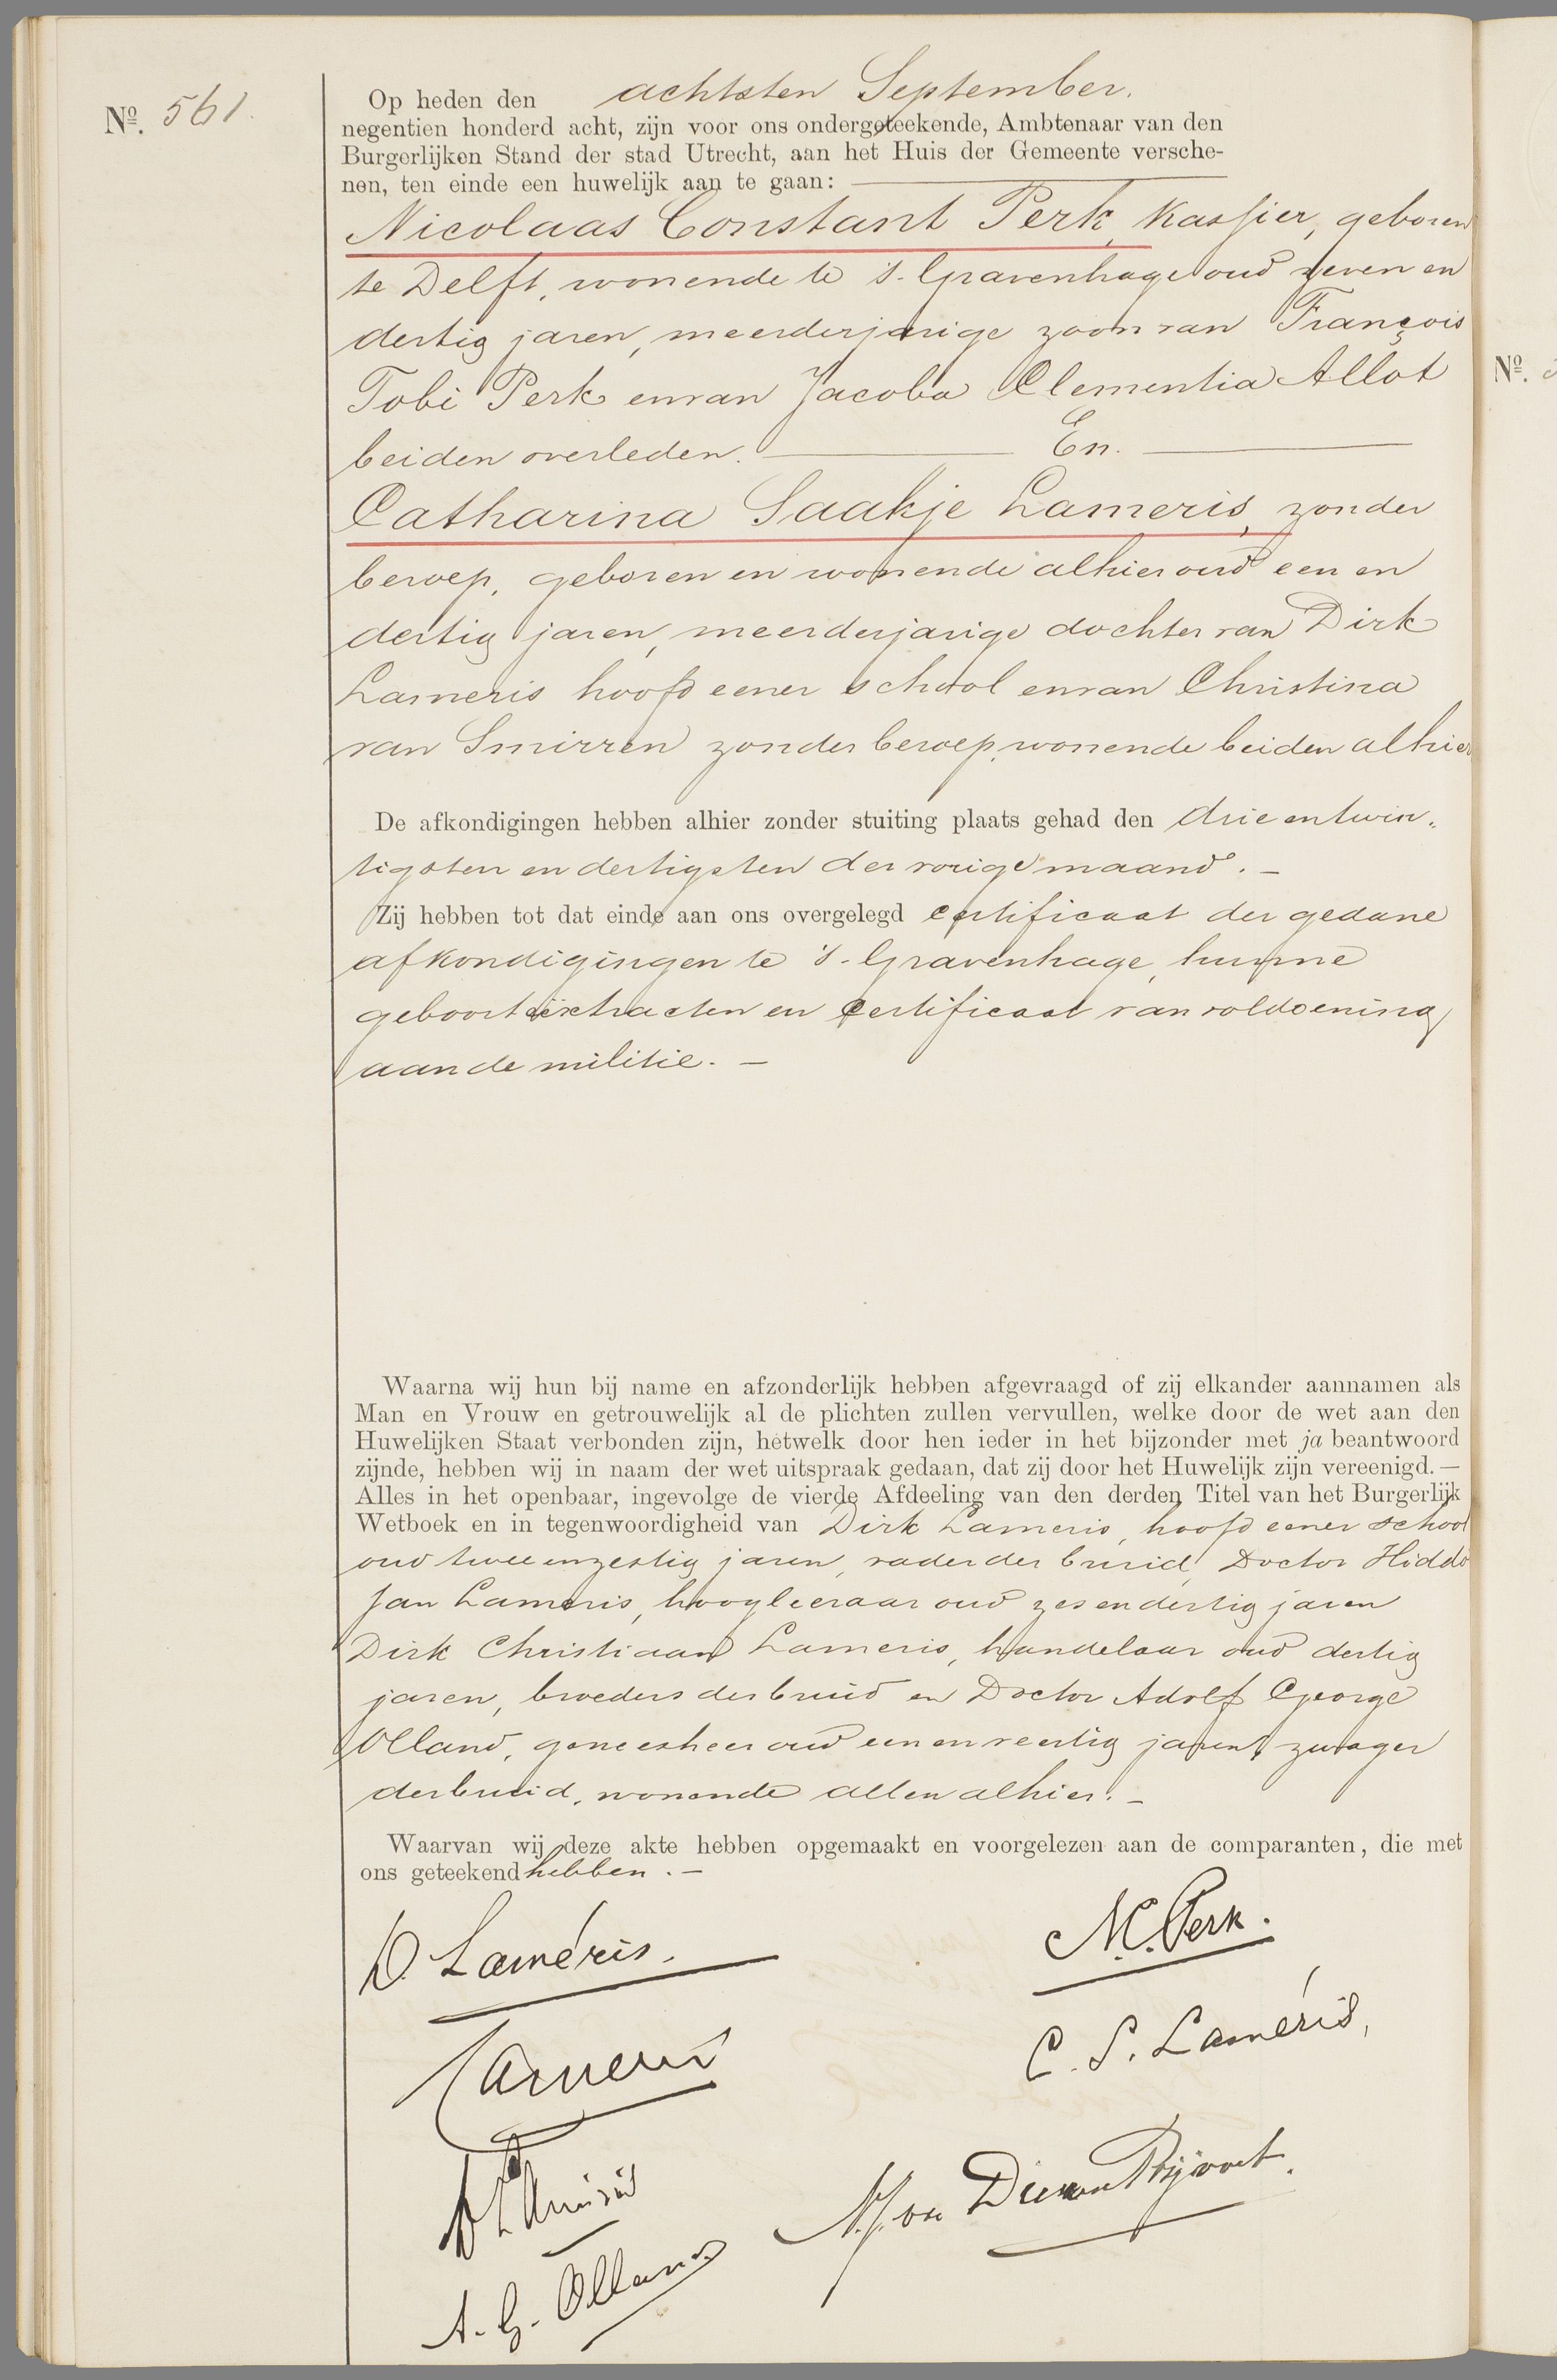 Nº. 561.
Op heden den achtsten September.
negentien honderd acht, zijn voor ons ondergeteekende, Ambtenaar van den
Burgerlijken Stand der stad Utrecht, aan het Huis der Gemeente versche-
nen, ten einde een huwelijk aan te gaan:
Nicolaas Constant Perk, kassier, geboren
te Delft, wonende te 's-Gravenhage oud zeven en
dertig jaren, meerderjarige zoon van François
Tobi Perk en van Jacoba Clementia Allot
beiden overleden. En.
Catharina Saakje Lameris, zonder
beroep, geboren en wonende alhier oud een en
dertig jaren, meerderjarige dochter van Dirk
Lameris hoofd eener school en van Christina
van Smirren zonder beroep, wonende beiden alhier
De afkondigingen hebben alhier zonder stuiting plaats gehad den drie en twin-
tigsten en dertigsten der vorige maand. -
Zij hebben tot dat einde aan ons overgelegd certificaat der gedane
afkondigingen te 's-Gravenhage, hunne
geboorteëxtracten en certificaat van voldoening
aan de militie. -
Waarna wij hun bij name en afzonderlijk hebben afgevraagd of zij elkander aannamen als
Man en Vrouw en getrouwelijk al de plichten zullen vervullen, welke door de wet aan den
Huwelijken Staat verbonden zijn, hetwelk door hen ieder in het bijzonder met ja beantwoord
zijnde, hebben wij in naam der wet uitspraak gedaan, dat zij door het Huwelijk zijn vereenigd. —
Alles in het openbaar, ingevolge de vierde Afdeeling van den derden Titel van het Burgerlijk
Wetboek en in tegenwoordigheid van Dirk Lameris, hoofd eener school
oud twee en zestig jaren, vader der bruid, Doctor Hiddo
Jan Lameris, hoogleeraar oud zes en dertig jaren
Dirk Christiaan Lameris, handelaar oud dertig
jaren, broeders der bruid en Doctor Adolf George
Olland, geneesheer oud een en veertig jaren, zwager
der bruid, wonende allen alhier. -
Waarvan wij deze akte hebben opgemaakt en voorgelezen aan de comparanten, die met
ons geteekend hebben. -
D. Laméris. N.C. Perk.
Lameris C. S. Laméris,
D Lameris
A. G. Olland
Nº.